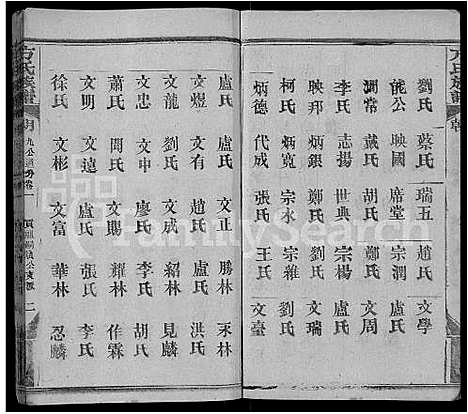 方氏族譜
劉氏 蔡氏 瑞五 趙氏 文學
能公 映國 席堂 宗潤 盧氏
潤常 戴氏 胡氏 鄭氏 文周
李氏 志揚 世典 宗 盧氏
映邦 炳銀 鄭氏 宗雅 文瑞
柯氏 炳 宗水 宗雜 劉氏
炳德 代氏 張氏 王氏 文臺
盧氏 盧氏 正 勝林 來林
文煜 文有 趙氏 盧氏 洪氏
文龍 劉氏 文成 紹林 見麟
文忠 文申 廖氏 李氏 胡氏
蕭氏 周氏 文賜 耀林 作霖
文明 文遠 盧氏 張氏 李氏
徐氏 文彬 文富 華林 忍麟
方氏族譜
FamilySearch